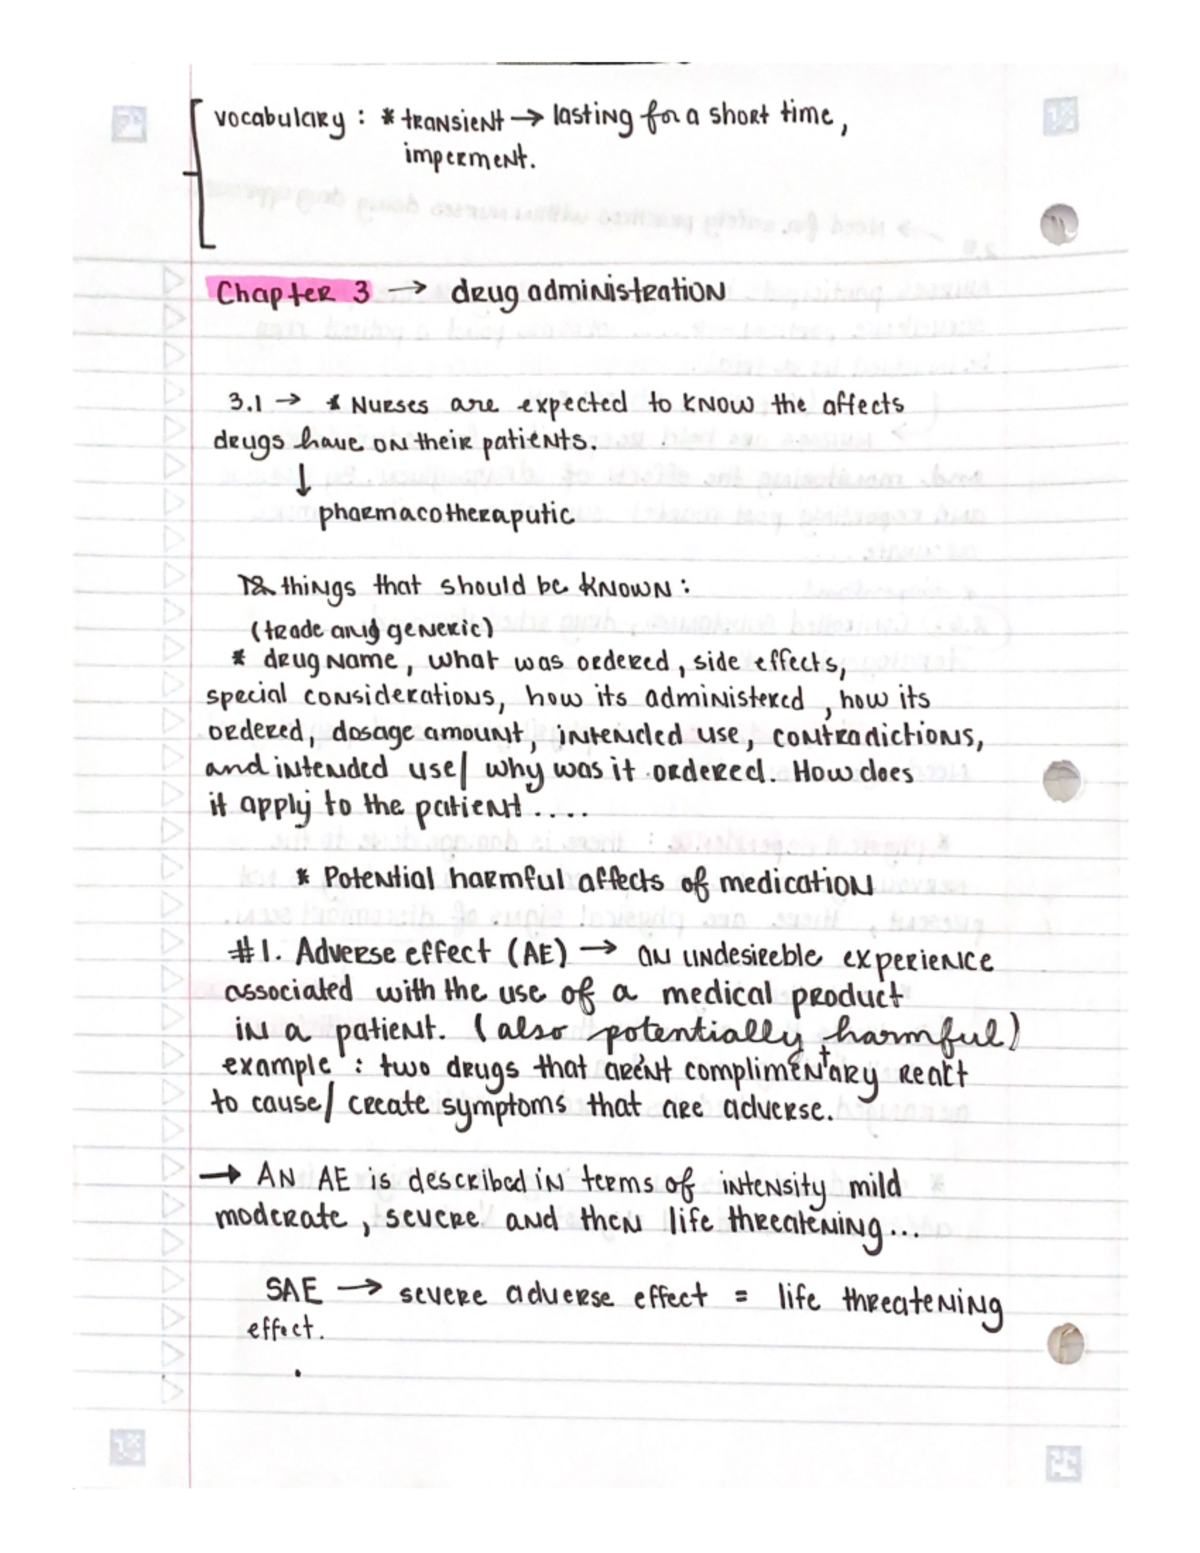 vocabulary : * transient → lasting for a short time,
imperment.
Chapter 3 → drug administration
3.1 → * Nurses are expected to know the affects
drugs have on their patients.
↓
pharmacotheraputic
things that should be known :
(trade and generic)
* drug name, what was ordered, side effects,
special considerations, how its administered, how its
ordered, dosage amount, intended use, contradictions,
and intended use/ why was it ordered. How does
it apply to the patient.....
* Potential harmful affects of medication
#1. Adverse effect (AE) → an undesireble experience
associated with the use of a medical product
in a patient. (also potentially harmful)
example : two drugs that arent complimentary react
to cause/ create symptoms that are adverse.
→ An AE is described in terms of intensity mild
moderate, severe and then life threatening...
SAE → severe adverse effect = life threatening
effect.